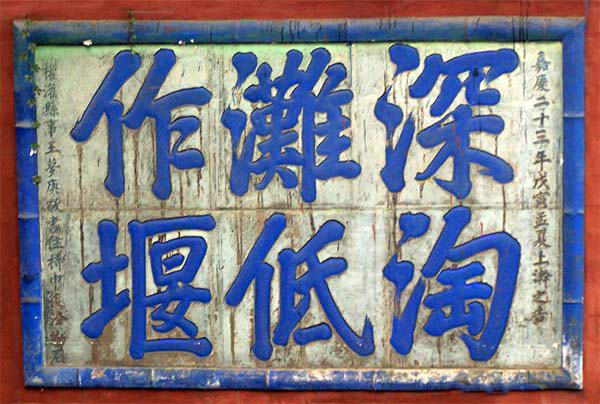 嘉慶二十三年戊寅孟夏上澣之吉
深淘
灘低
作堰
權灌縣事王夢庚敬書住持